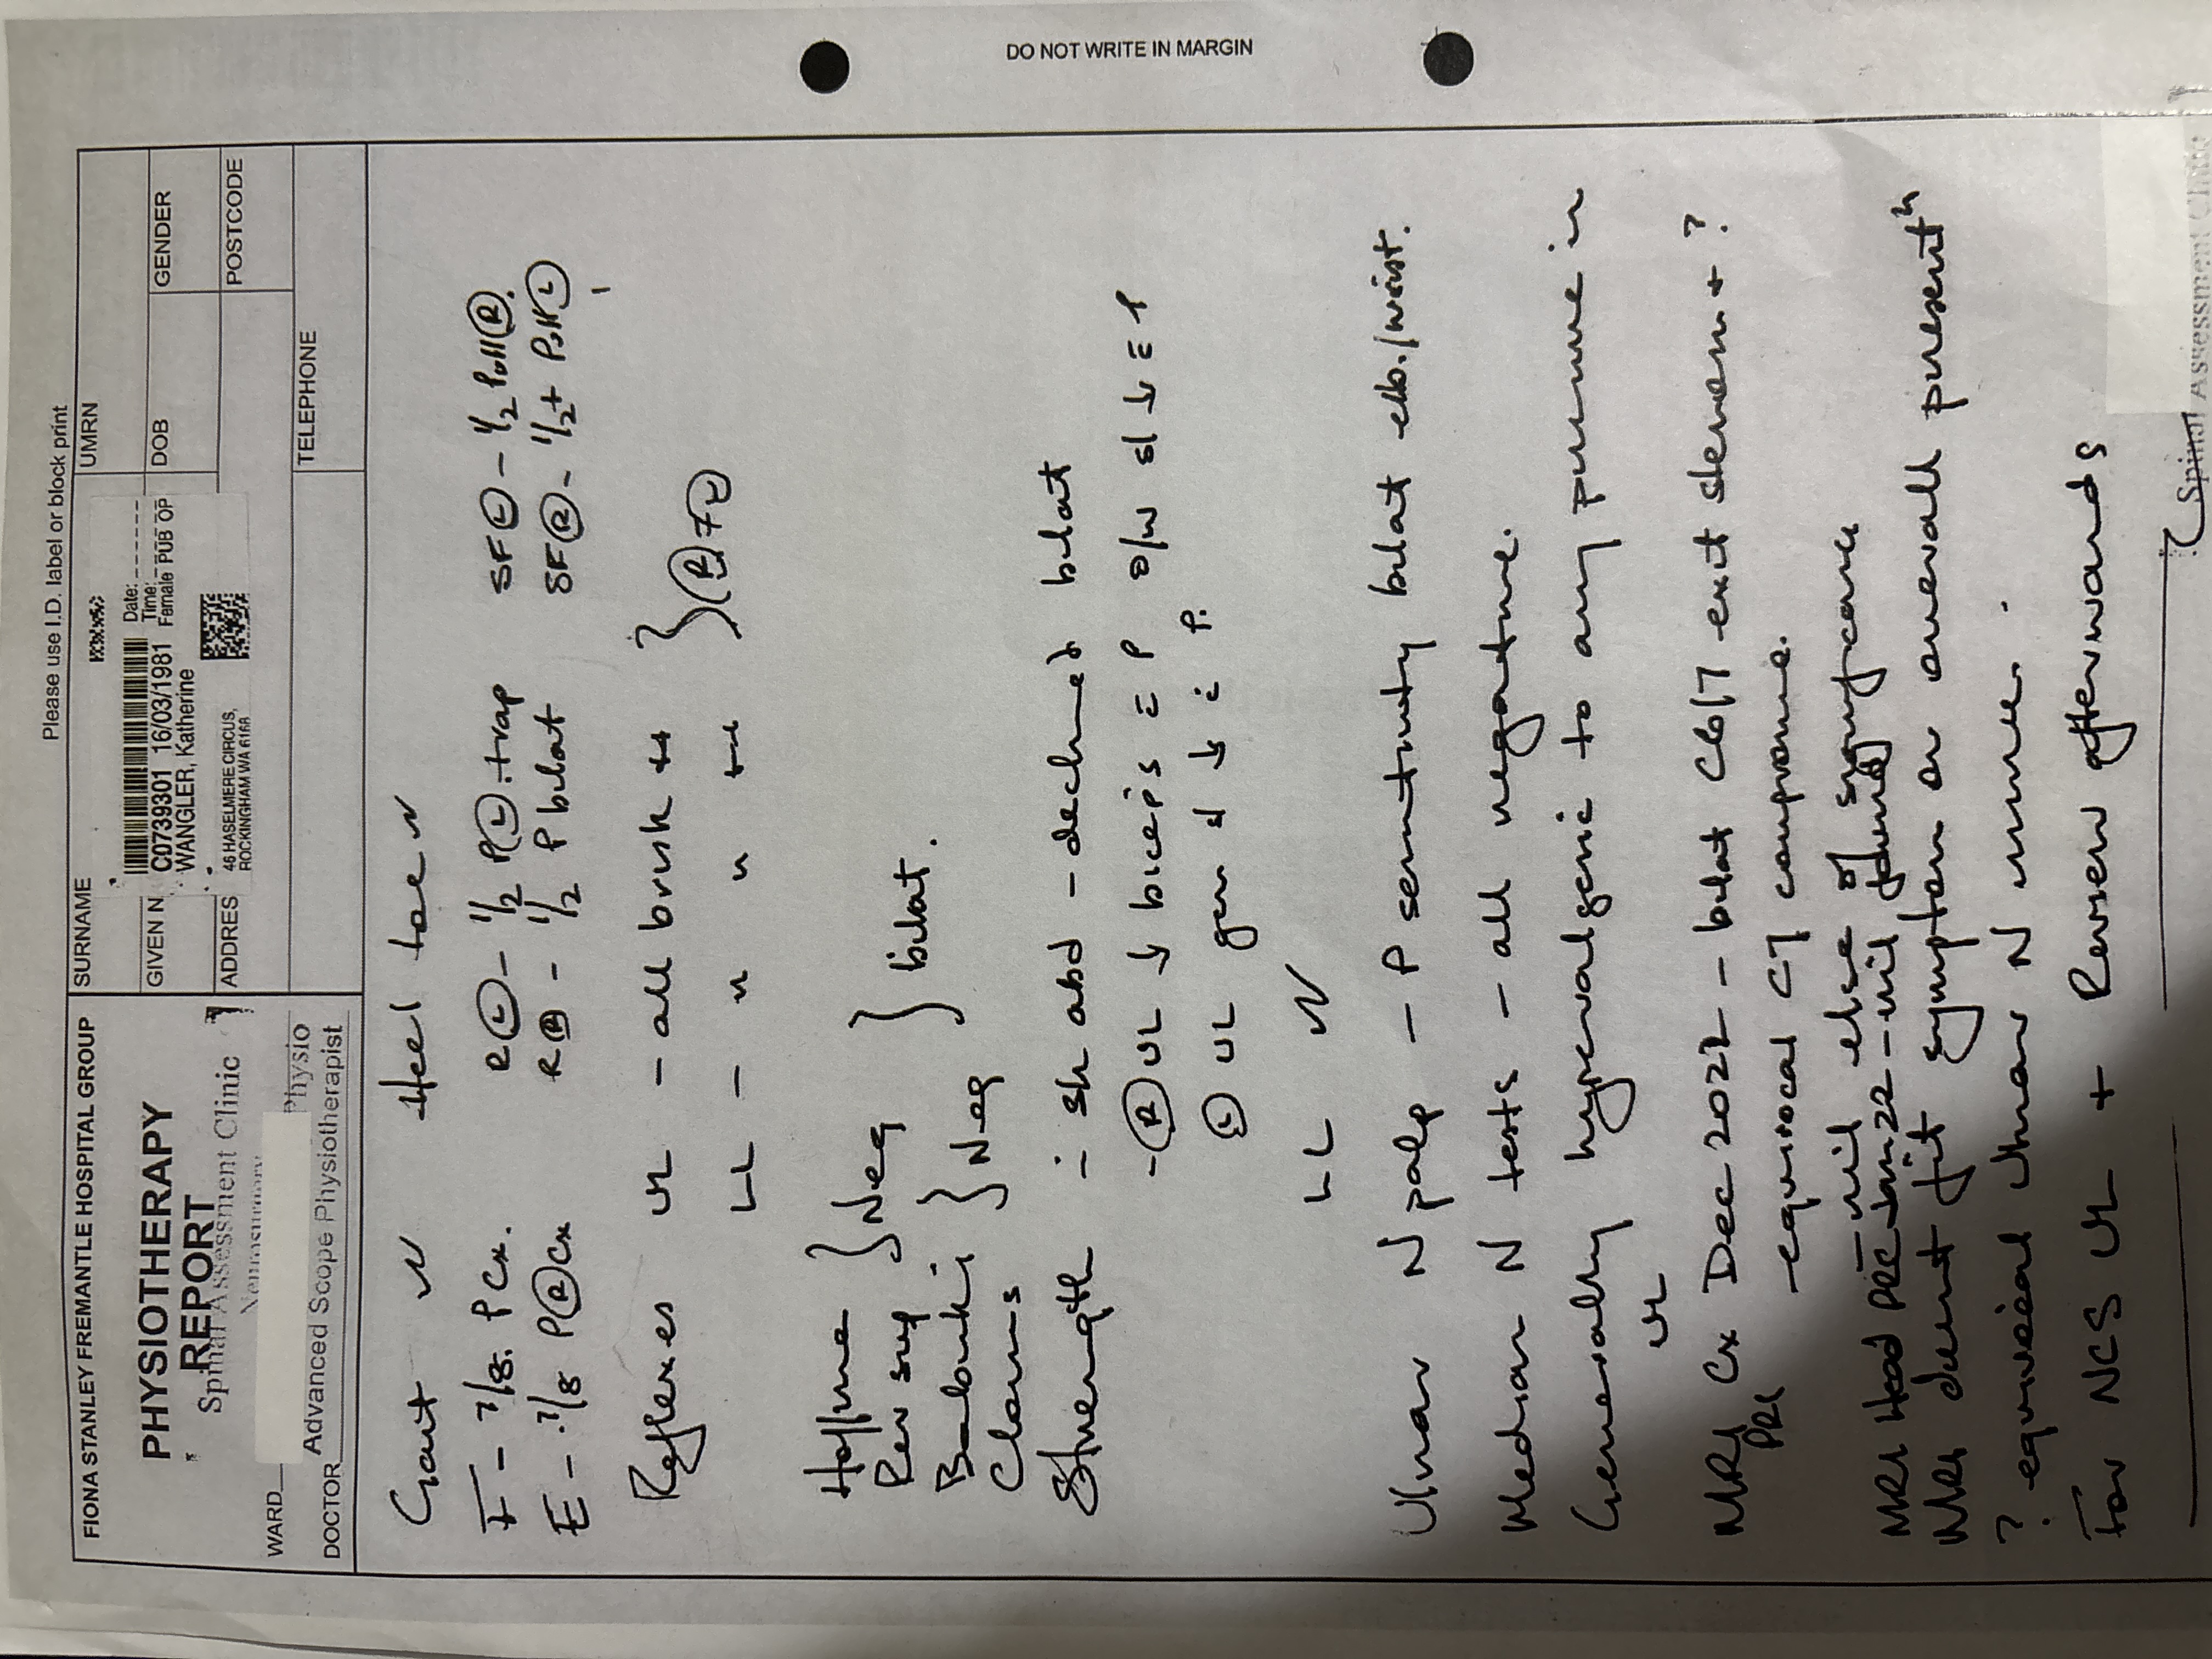 Please use I.D. label or block print
FIONA STANLEY FREMANTLE HOSPITAL GROUP
PHYSIOTHERAPY
REPORT
Spinal Assessment Clinic
Neurosurgery
WARD
Physio
DOCTOR Advanced Scope Physiotherapist
SURNAME
UMRN
GIVEN N
DOB
GENDER
ADDRES
POSTCODE
TELEPHONE
Date:
Time:
C0739301 16/03/1981 Female PUB OP
WANGLER, Katherine
46 HASELMERE CIRCUS,
ROCKINGHAM WA 6168
Gait N Heel toe N
F - 7/8. P Cx. R (L) - 1/2 P (L) trap SF (L) - 1/2 Pull (R).
E - 7/8 P (R) Cx R (R) - 1/2 P bilat SF (R) - 1/2+ Pull (L)
Reflexes UL - all brisk ++
LL - " " " ++ } (R) = (L)
Hoffmans } Neg } bilat.
Rev sup
Babinski } Neg
Clonus
Strength - sh abd - declined bilat
- (R) UL ↓ biceps = P o/w sl ↓ = P
(L) UL gen sl ↓ = P.
LL N
Ulnar N palp - P sensitivity bilat elb./wrist.
Median N tests - all negative.
Generally hyperalgesic to any pressure in
UL
MRI Cx Dec 2022 - bilat C6/7 exit stenosis + ?
PRI - equivocal C7 compromise.
- nil else of significance
MRI Head PRI Jan 22 - nil found
MRI doesn't fit symptoms or overall presentn
? equivocal ulnar N
For NCS UL + Review afterwards
Spinal Assessment Clinic
DO NOT WRITE IN MARGIN